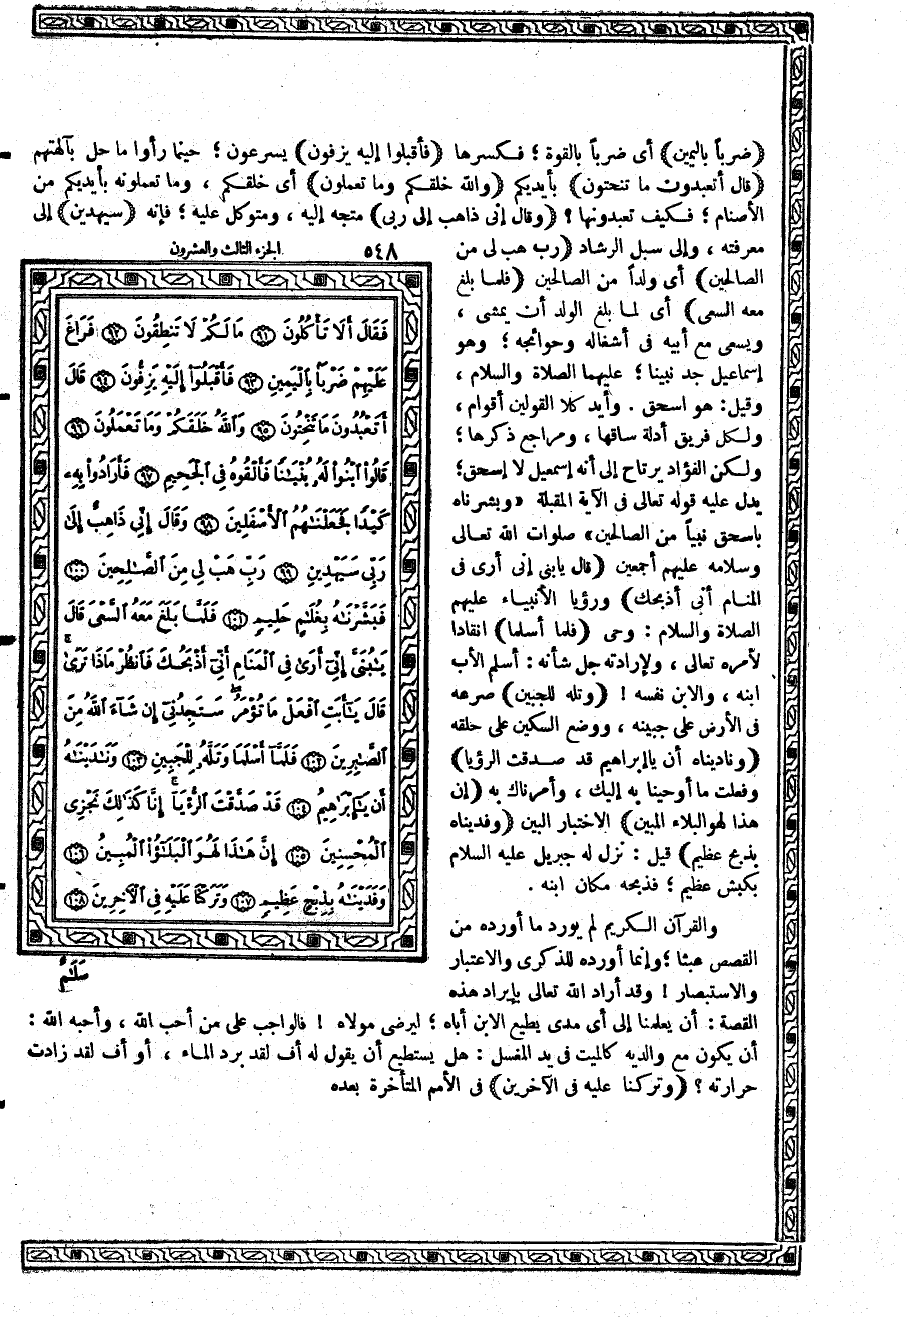 (ضرباً باليمين) أى ضرباً بالقوة ؛ فكسرها (فأقبلوا إليه يزفون) يسرعون ؛ حينما رأوا ما حل بآلهتهم
(قال أتعبدون ما تنحتون) بأيديكم (والله خلقكم وما تعملون) أى خلقكم ، وما تعملونه بأيديكم من
الأصنام ؛ فكيف تعبدونها ؟ (وقال إنى ذاهب إلى ربى) متجه إليه ، ومتوكل عليه ؛ فإنه (سيهدين) إلى
معرفته ، وإلى سبل الرشاد (رب هب لى من
الصالحين) أى ولداً من الصالحين (فلما بلغ
معه السعى) أى لما بلغ الولد أن يمشى ،
ويسعى مع أبيه فى أشغاله وحوائجه ؛ وهو
إسماعيل جد نبينا ؛ عليهما الصلاة والسلام ،
وقيل: هو اسحق . وأيد كلا القولين أقوام ،
ولكل فريق أدلة ساقها ، ومراجع ذكرها ؛
ولكن الفؤاد يرتاح إلى أنه إسمعيل لا إسحق؛
يدل عليه قوله تعالى فى الآية المقبلة «وبشرناه
باسحق نبياً من الصالحين» صلوات الله تعالى
وسلامه عليهم أجمعين (قال يابنى إنى أرى فى
المنام أنى أذبحك) ورؤيا الأنبياء عليهم
الصلاة والسلام : وحى (فلما أسلما) انقادا
لأمره تعالى ، ولإرادته جل شأنه : أسلم الأب
ابنه ، والابن نفسه ! (وتله للجبين) صرعه
فى الأرض على جبينه ، ووضع السكين على حلقه
(وناديناه أن ياإبراهيم قد صدقت الرؤيا)
وفعلت ما أوحينا به إليك ، وأمرناك به (إن
هذا لهو البلاء المبين) الاختبار البين (وفديناه
بذبح عظيم) قيل : نزل له جبريل عليه السلام
بكبش عظيم ؛ فذبحه مكان ابنه .
والقرآن الكريم لم يورد ما أورده من
القصص عبثا ؛ وإنما أورده للذكرى والاعتبار
والاستبصار ! وقد أراد الله تعالى بإيراد هذه
القصة : أن يعلمنا إلى أى مدى يطيع الابن أباه ؛ ليرضى مولاه ! فالواجب على من أحب الله ، وأحبه الله :
أن يكون مع والديه كالميت فى يد المغسل : هل يستطيع أن يقول له أف لقد برد الماء ، أو أف لقد زادت
حرارته ؟ (وتركنا عليه فى الآخرين) فى الأمم المتأخرة بعده
٥٤٨ الجزء الثالث والعشرون
فَقَالَ أَلَا تَأْكُلُونَ ﴿٩١﴾ مَا لَكُمْ لَا تَنطِقُونَ ﴿٩٢﴾ فَرَاغَ
عَلَيْهِمْ ضَرْبًا بِالْيَمِينِ ﴿٩٣﴾ فَأَقْبَلُوٓا إِلَيْهِ يَزِفُّونَ ﴿٩٤﴾ قَالَ
أَتَعْبُدُونَ مَا تَنْحِتُونَ ﴿٩٥﴾ وَاللَّهُ خَلَقَكُمْ وَمَا تَعْمَلُونَ ﴿٩٦﴾
قَالُوا ابْنُوا لَهُۥ بُنْيَـٰنًا فَأَلْقُوهُ فِي الْجَحِيمِ ﴿٩٧﴾ فَأَرَادُوا بِهِۦ
كَيْدًا فَجَعَلْنَـٰهُمُ الْأَسْفَلِينَ ﴿٩٨﴾ وَقَالَ إِنِّي ذَاهِبٌ إِلَىٰ
رَبِّي سَيَهْدِينِ ﴿٩٩﴾ رَبِّ هَبْ لِي مِنَ الصَّـٰلِحِينَ ﴿١٠٠﴾
فَبَشَّرْنَـٰهُ بِغُلَـٰمٍ حَلِيمٍ ﴿١٠١﴾ فَلَمَّا بَلَغَ مَعَهُ السَّعْيَ قَالَ
يَـٰبُنَيَّ إِنِّيٓ أَرَىٰ فِي الْمَنَامِ أَنِّيٓ أَذْبَحُكَ فَانظُرْ مَاذَا تَرَىٰ ۚ
قَالَ يَـٰٓأَبَتِ افْعَلْ مَا تُؤْمَرُ ۖ سَتَجِدُنِيٓ إِن شَآءَ اللَّهُ مِنَ
الصَّـٰبِرِينَ ﴿١٠٢﴾ فَلَمَّآ أَسْلَمَا وَتَلَّهُۥ لِلْجَبِينِ ﴿١٠٣﴾ وَنَـٰدَيْنَـٰهُ
أَن يَـٰٓإِبْرَٰهِيمُ ﴿١٠٤﴾ قَدْ صَدَّقْتَ الرُّءْيَآ ۚ إِنَّا كَذَٰلِكَ نَجْزِي
الْمُحْسِنِينَ ﴿١٠٥﴾ إِنَّ هَـٰذَا لَهُوَ الْبَلَـٰٓؤُا الْمُبِينُ ﴿١٠٦﴾
وَفَدَيْنَـٰهُ بِذِبْحٍ عَظِيمٍ ﴿١٠٧﴾ وَتَرَكْنَا عَلَيْهِ فِي الْآخِرِينَ ﴿١٠٨﴾
سَلَـٰمٌ